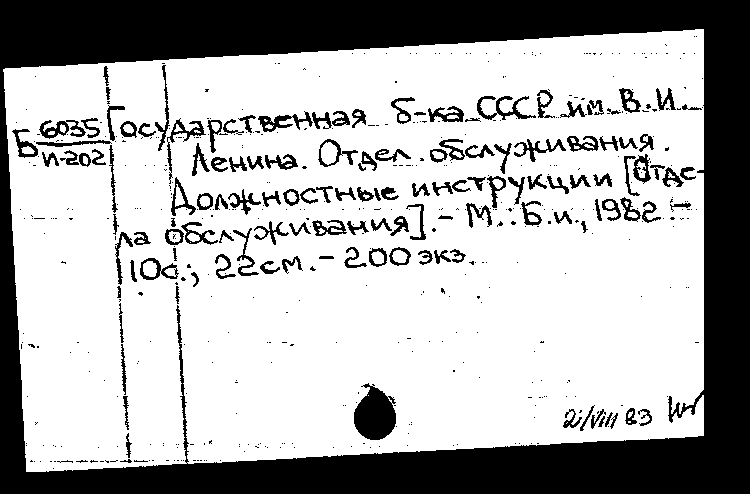 Б 6035/И-202
Государственная б-ка СССР им. В.И.
Ленина. Отдел обслуживания.
Должностные инструкции [Отде-
ла обслуживания]. - М.: Б.и., 1982. -
10с.; 22см. - 200 экз.
2/VIII 83